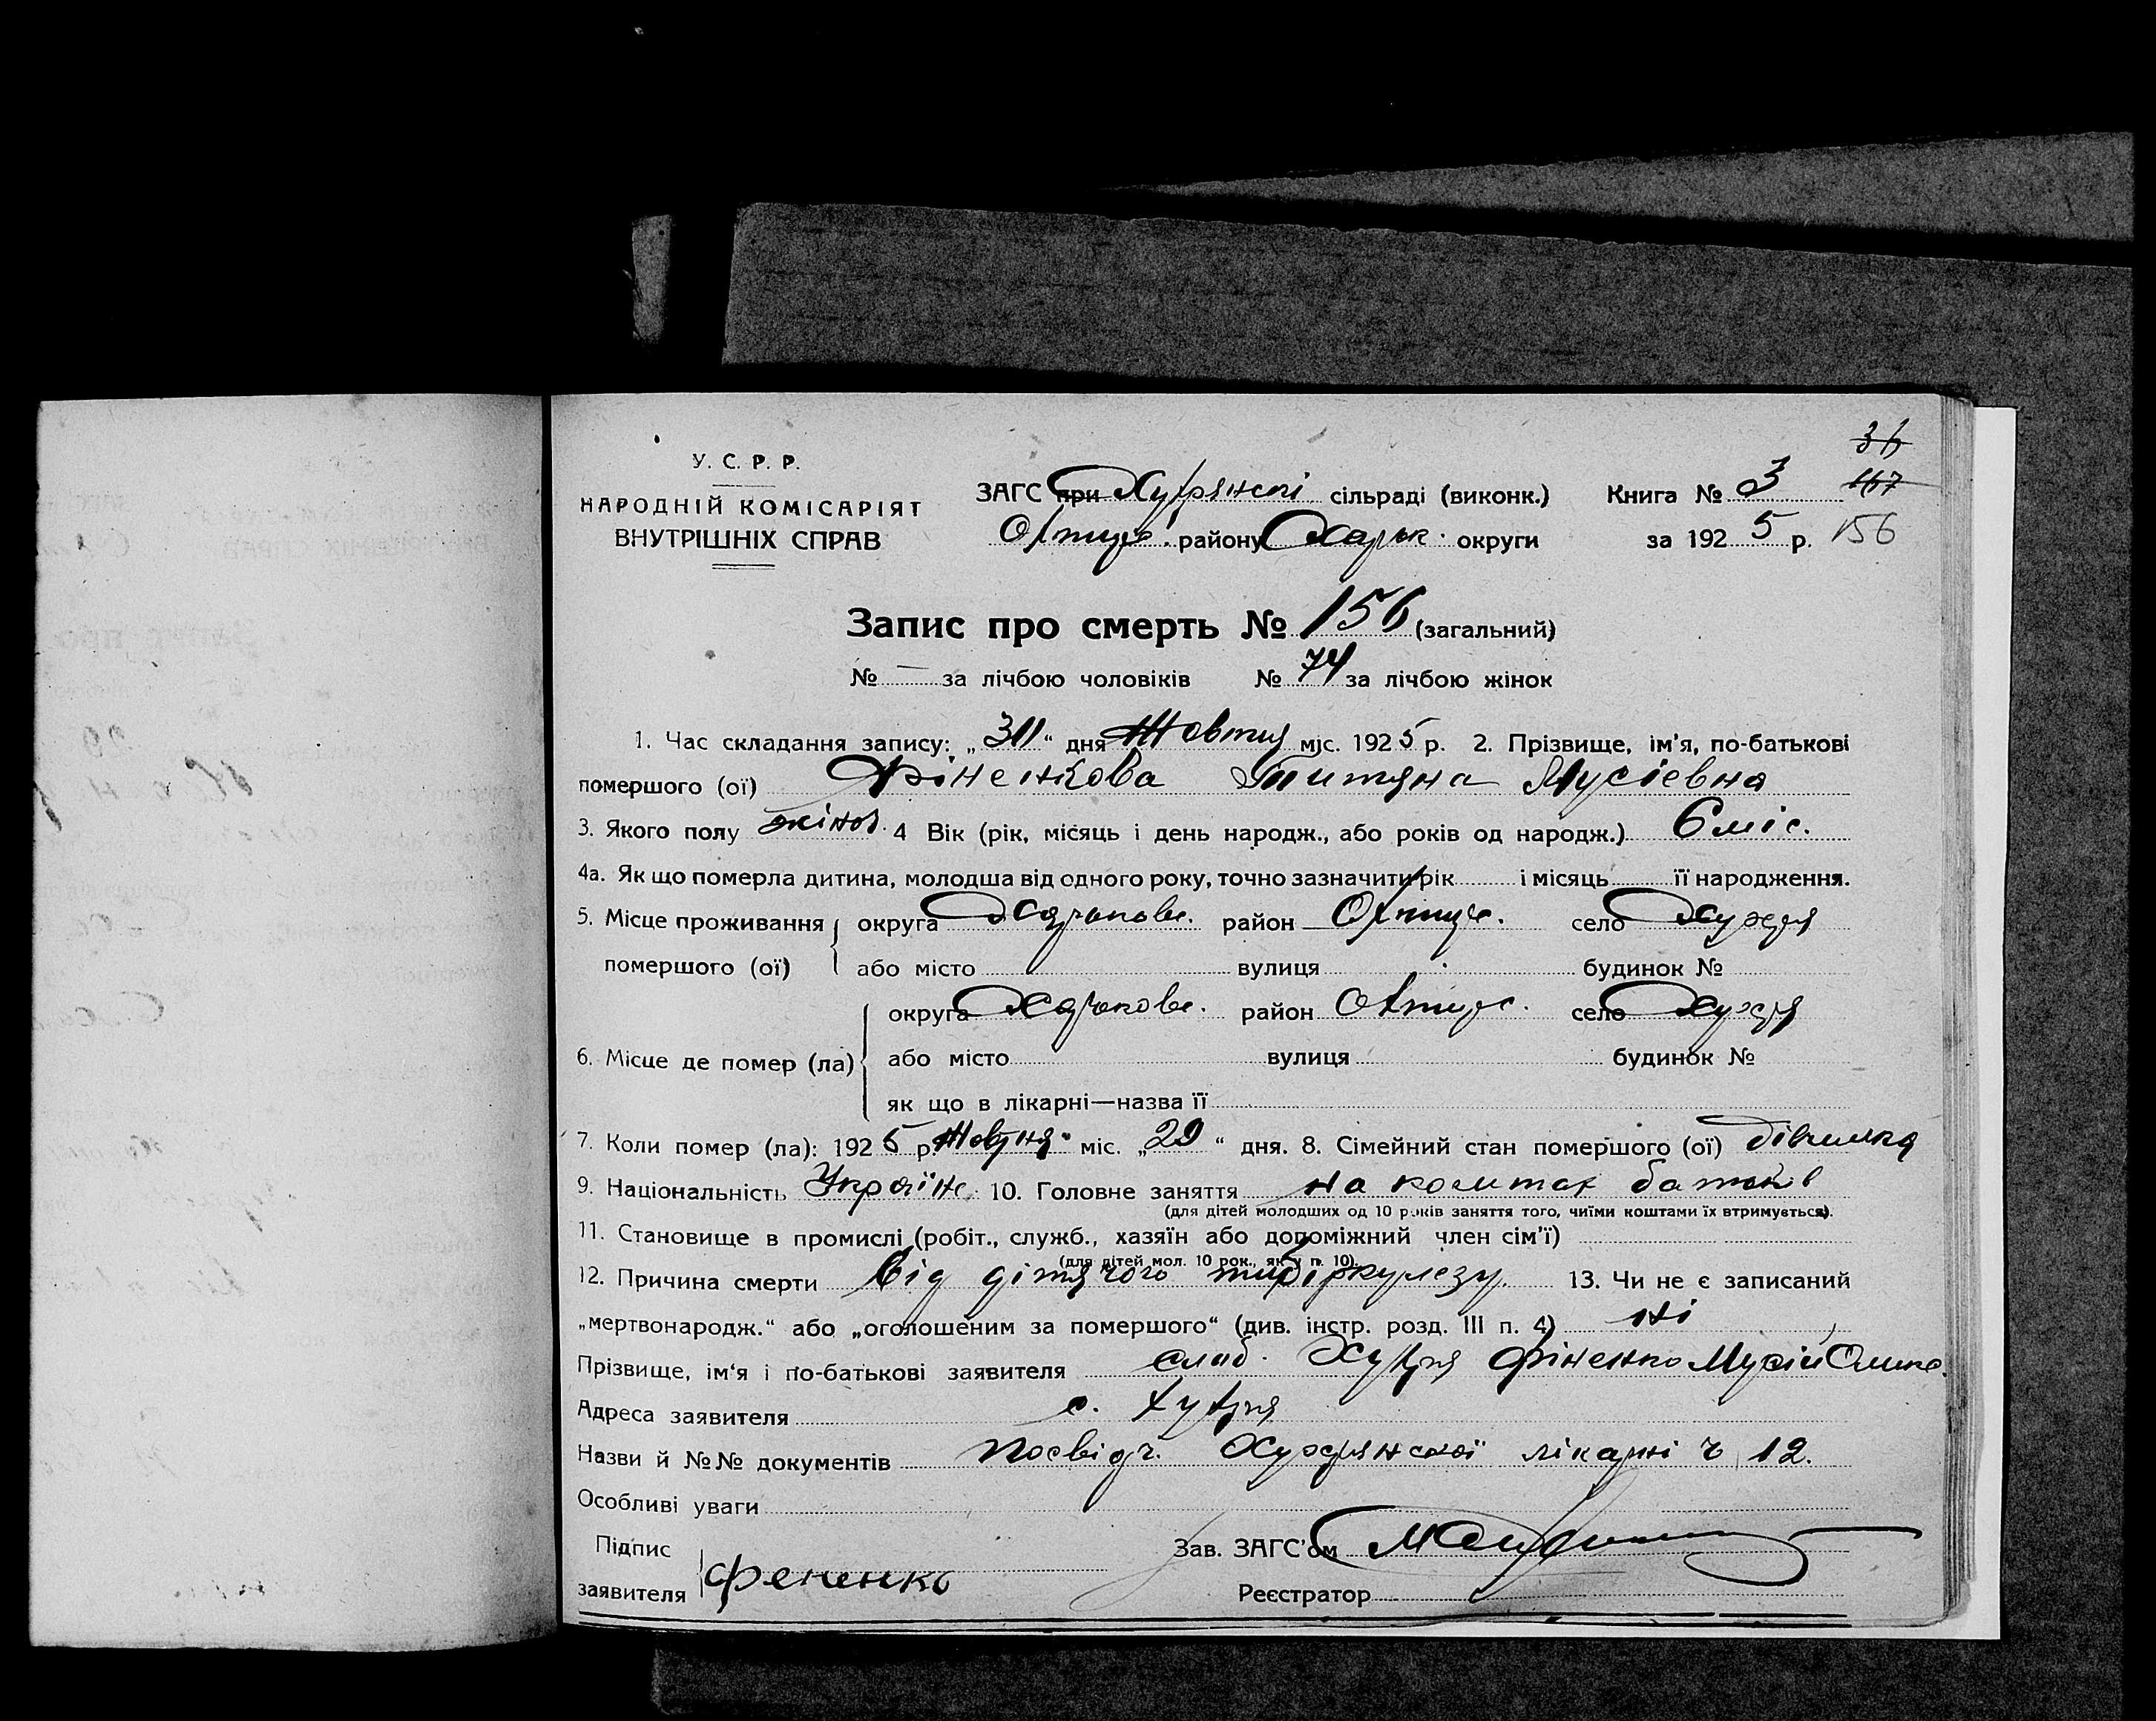 36
У. С. Р. Р.
НАРОДНІЙ КОМІСАРІЯТ
ВНУТРІШНІХ СПРАВ
ЗАГС при сільраді (виконк.)
Охтир. району Харьк. округи
Книга № 3 167
за 1925 р. 156
Запис про смерть № 156 (загальний)
№ — за лічбою чоловіків № 74 за лічбою жінок
1. Час складання запису: „ “ дня Жовтня міс. 1925 р. 2. Прізвище, ім'я, по-батькові
помершого (ої) Фіненкова Титяна Мусіевна
3. Якого полу жіноч. 4 Вік (рік, місяць і день народж., або років од народж.) 6 міс.
4а. Як що померла дитина, молодша від одного року, точно зазначити рік і місяць її народження.
5. Місце проживання округа Харькове. район Охтир. село Хухря
помершого (ої) або місто вулиця будинок №
округа Харькове. район Охтир. село Хухря
6. Місце де помер (ла) або місто вулиця будинок №
як що в лікарні—назва її
7. Коли помер (ла): 1925 р. Жовтня міс. „29“ дня. 8. Сімейний стан помершого (ої) дівчинка
9. Національність Україн. 10. Головне заняття на коштах батьків
(для дітей молодших од 10 років заняття того, чиїми коштами їх втримується).
11. Становище в промислі (робіт., служб., хазяїн або допоміжний член сім'ї)
(для дітей мол. 10 рок., як у п. 10).
12. Причина смерти від дітячого тибіркулезу. 13. Чи не є записаний
„мертвонародж.“ або „оголошеним за помершого“ (див. інстр. розд. III п. 4) ні
Прізвище, ім'я і по-батькові заявителя слоб. Хухря Фіненко Мусій
Адреса заявителя с. Хухря
Назви й №№ документів Посвідч. Хухрянської лікарні ч 12.
Особливі уваги
Підпис
заявителя Фененко
Зав. ЗАГС'ом
Реєстратор